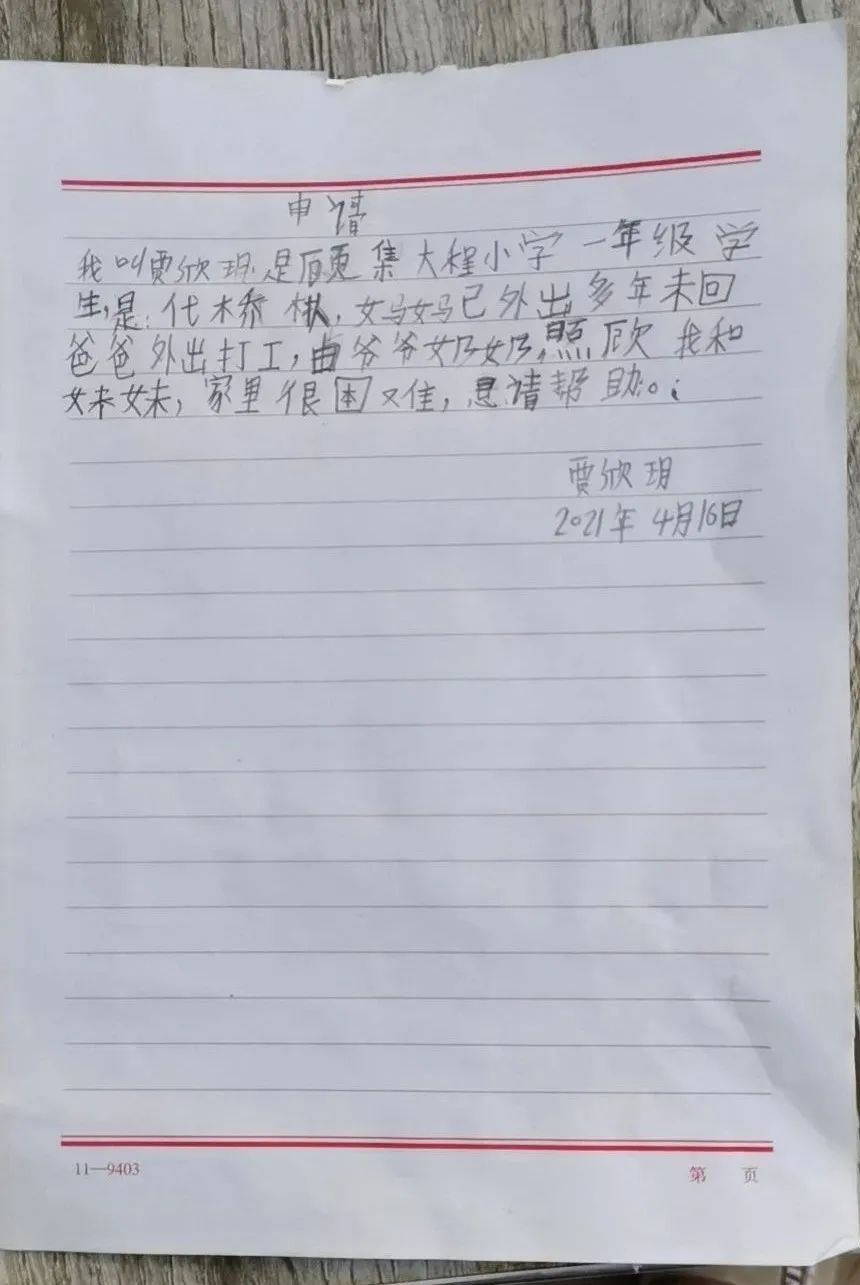 申请
我叫贾欣玥.是顾集大程小学一年级学
生,是.代桥树人,妈妈已外出多年未回
爸爸外出打工,由爷爷奶奶,照顾我和
妹妹,家里很困难,恳请帮助。
贾欣玥
2021年4月16日
11—9403
第 页